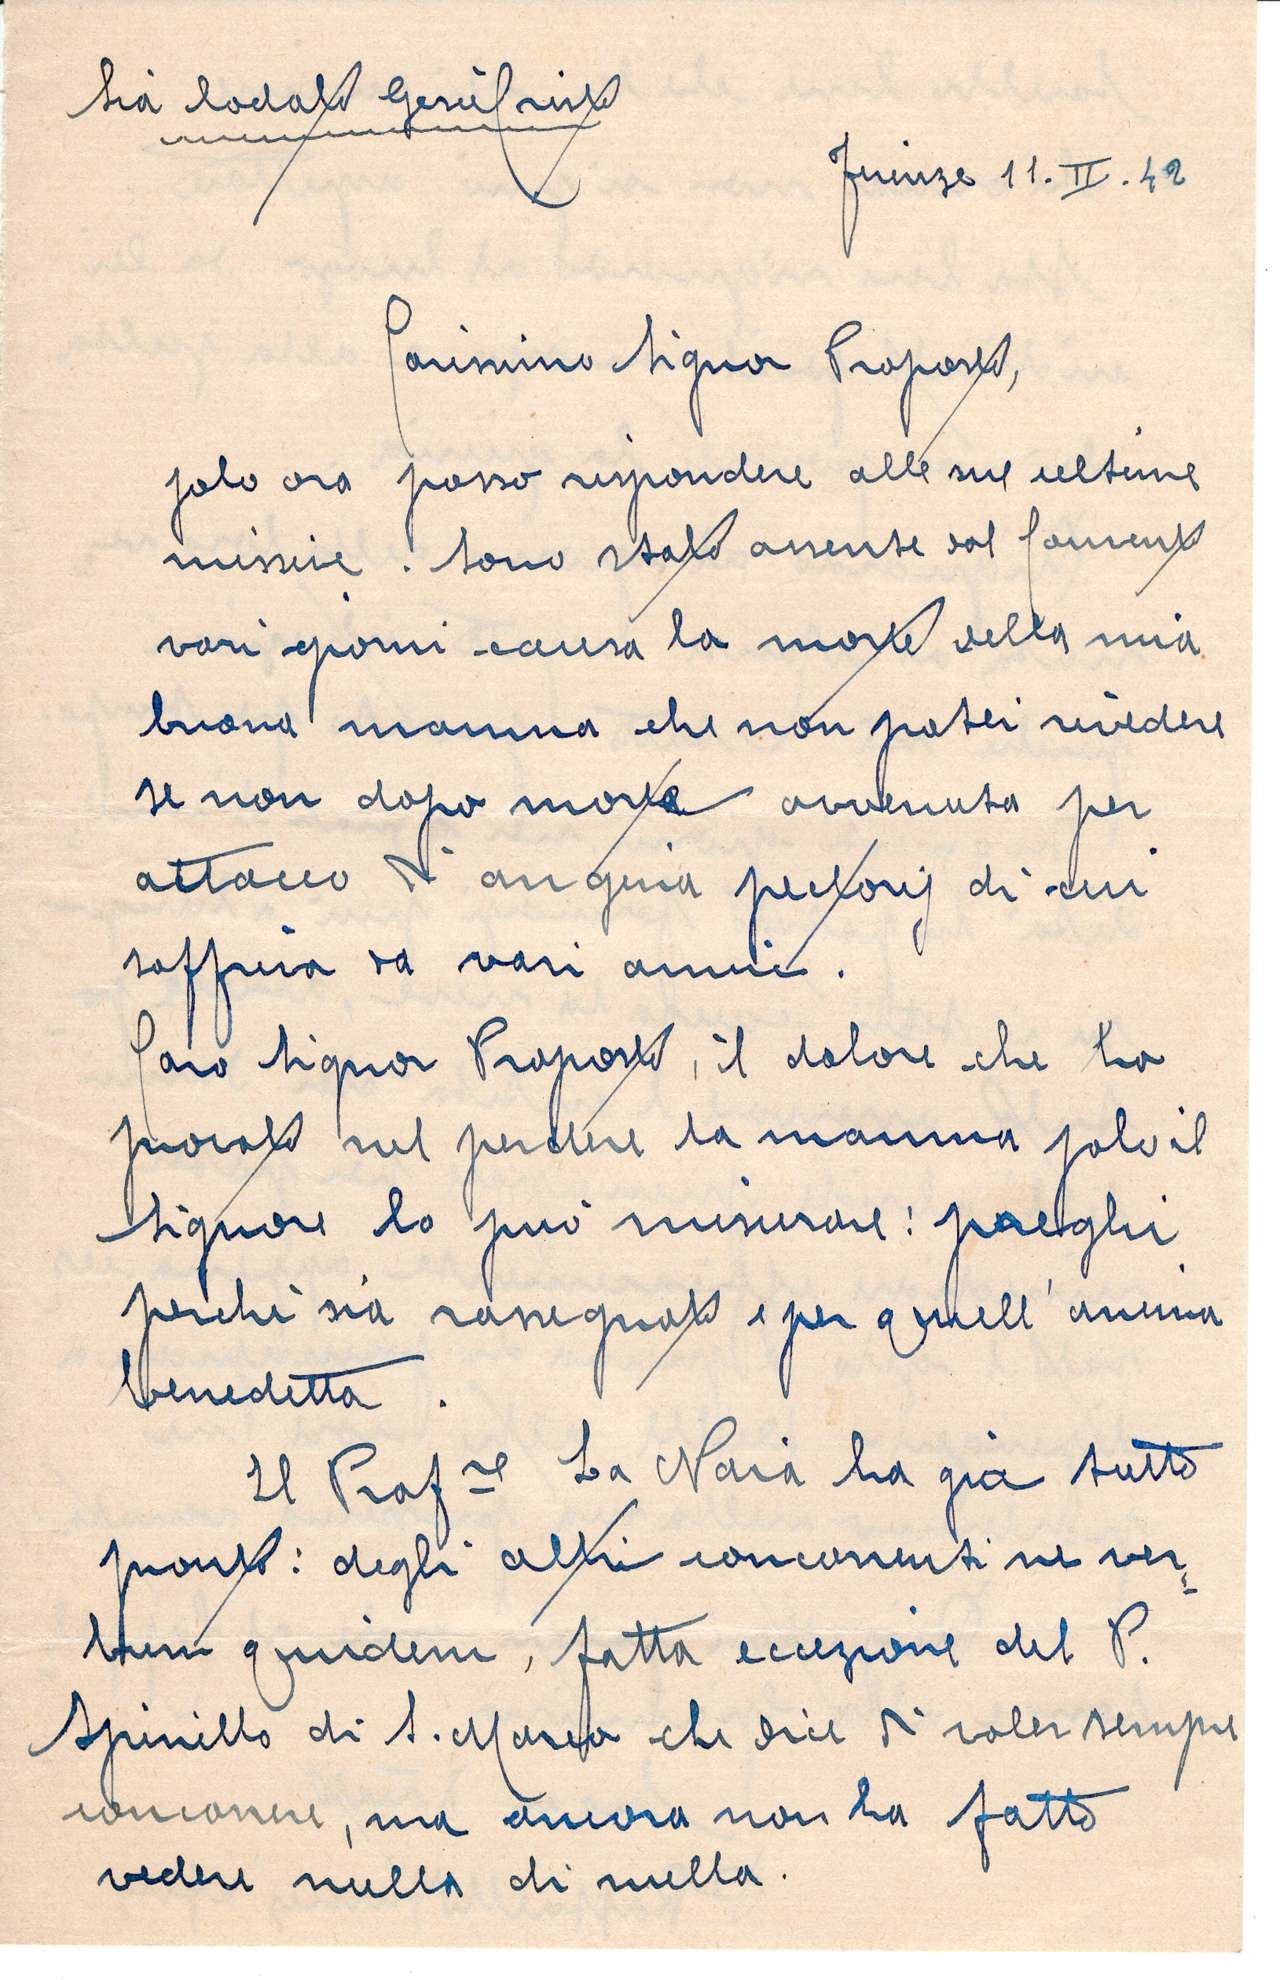 Sia lodato Gesù Cristo
Firenze 11. II. 42
Carissimo Signor Proposto,
solo ora posso rispondere alle sue ultime
missive. Sono stato assente dal Convento
vari giorni causa la morte della mia
buona mamma che non potei rivedere
se non dopo morte avvenuta per
attacco di angina pectoris di cui
soffriva da vari anni.
Caro Signor Proposto, il dolore che ho
provato nel perdere la mamma solo il
Signore lo può misurare: preghi
perchè sia rassegnato e per quell'anima
benedetta.
Il Prof.re La Naia ha già tutto
pronto: degli altri concorrenti ne ver=
bum quidem, fatta eccezione del P.
Spinillo di S. Marco che dice di voler sempre
concorrere, ma ancora non ha fatto
vedere nulla di nulla.